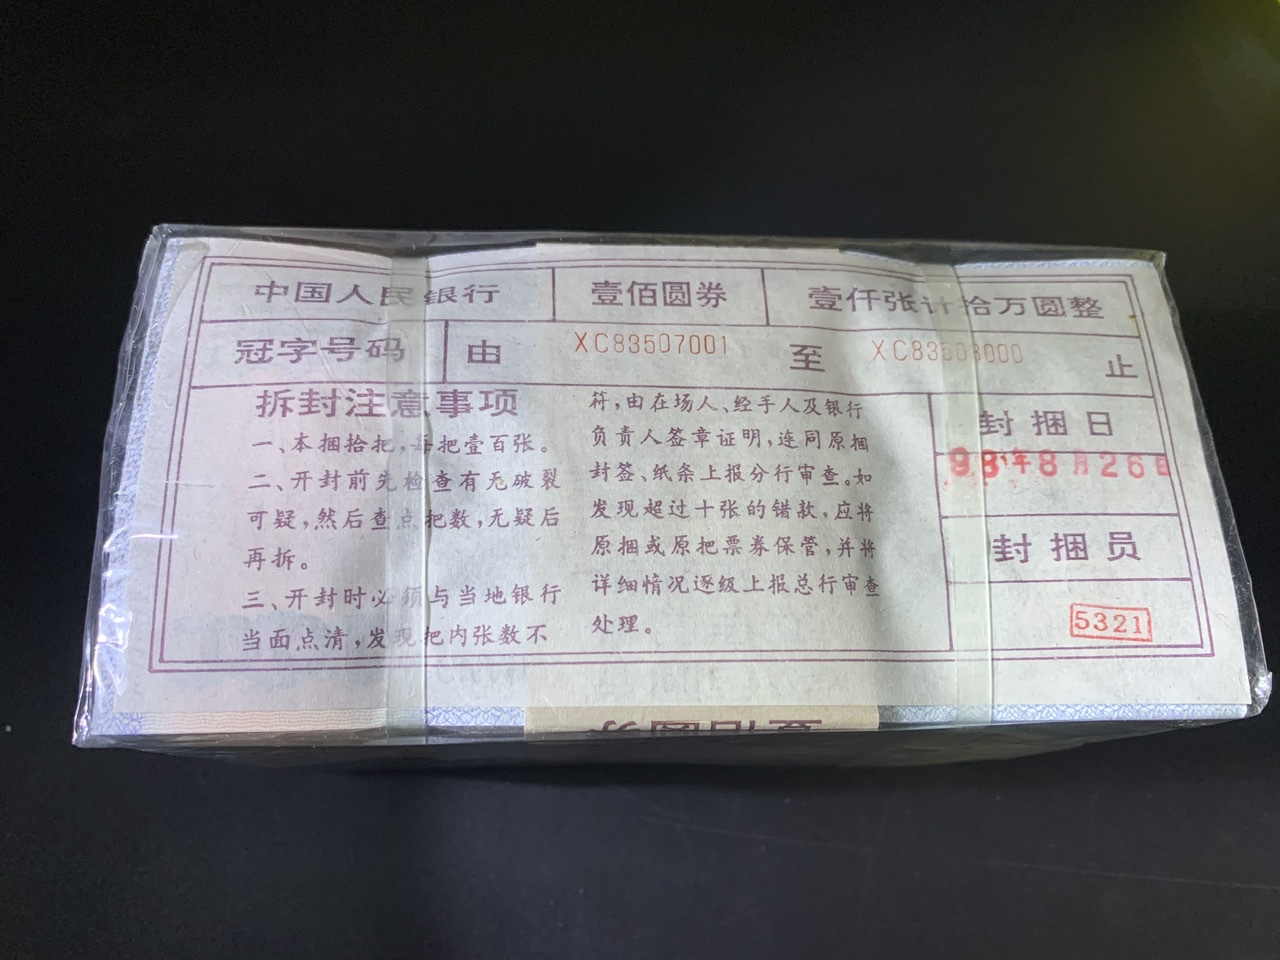 中国人民银行 壹佰圆券 壹仟张计拾万圆整
冠字号码 由 XC83507001 至 XC83508000 止
拆封注意事项
一、本捆拾把,每把壹百张。
二、开封前先检查有无破裂
可疑,然后查点把数,无疑后
再拆。
三、开封时必须与当地银行
当面点清,发现把内张数不
符,由在场人、经手人及银行
负责人签章证明,连同原捆
封签、纸条上报分行审查。如
发现超过十张的错款,应将
原捆或原把票券保管,并将
详细情况逐级上报总行审查
处理。
封捆日
98年8月26日
封捆员
5321